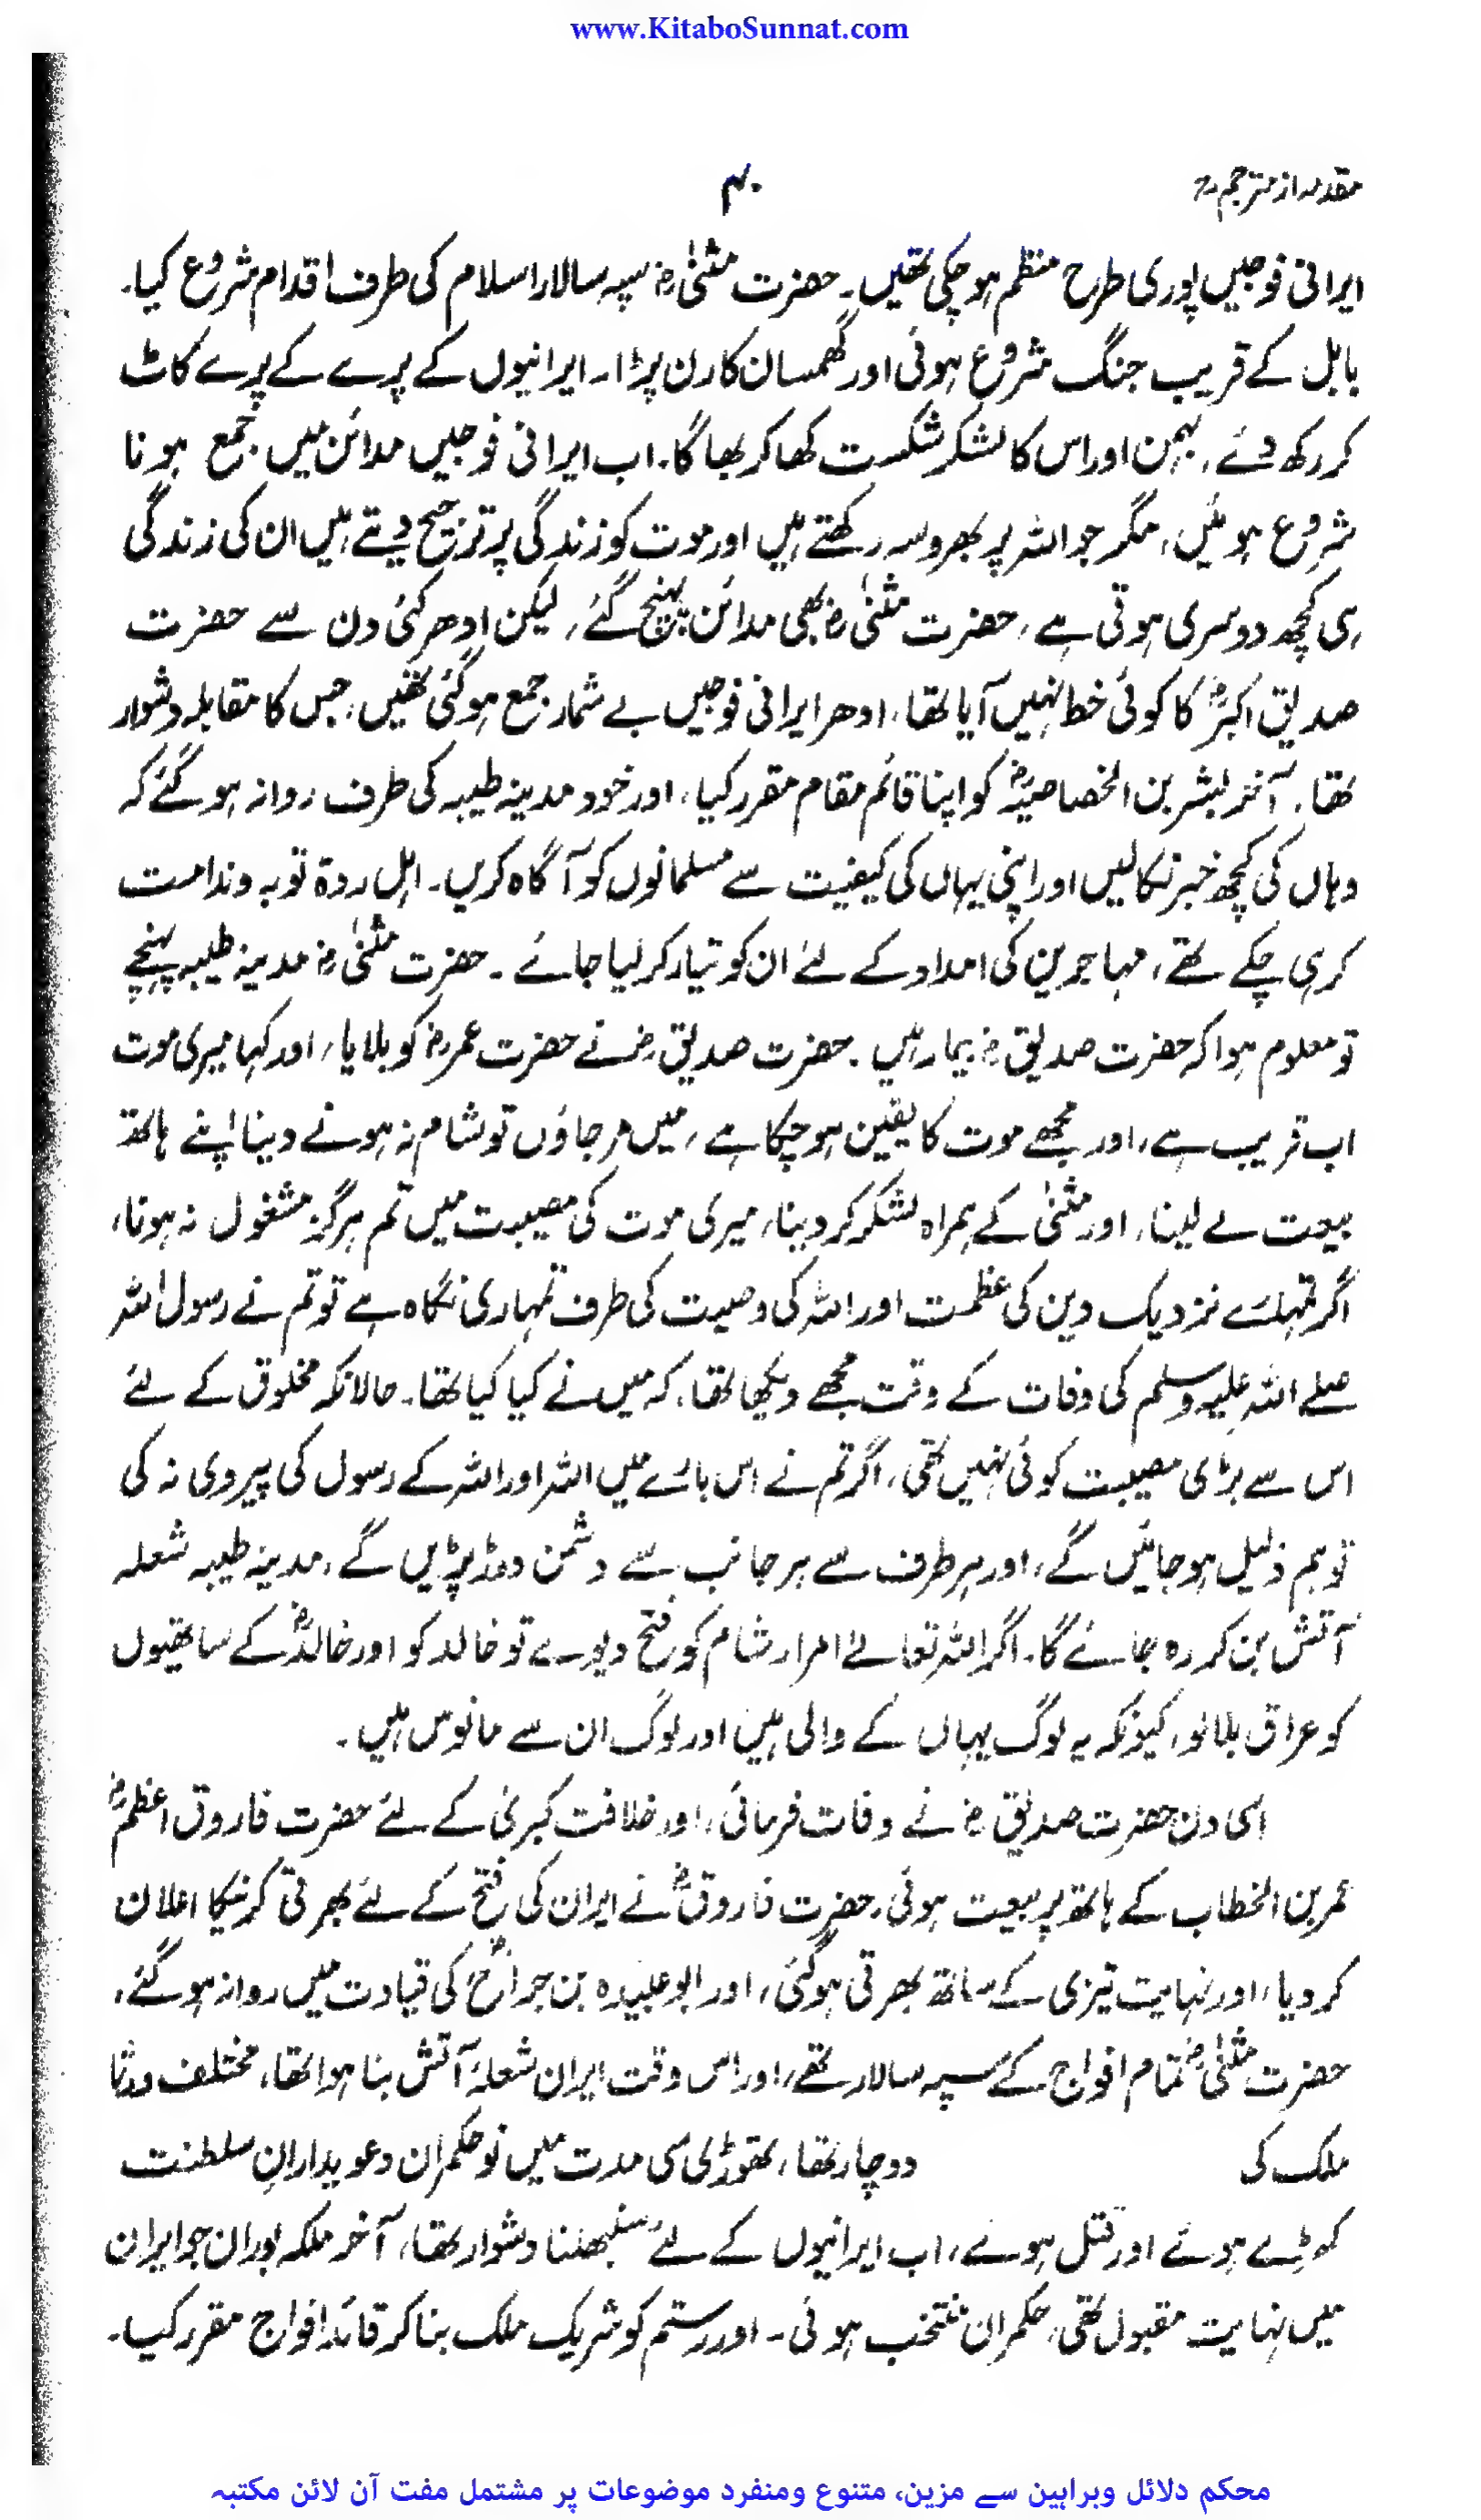 www.KitaboSunnat.com
مقدمہ از مترجم
۴۰
ایرانی فوجیں پوری طرح منظم ہو چکی تھیں۔ حضرت مثنیٰ رض سپہ سالار اسلام کی طرف اقدام شروع کیا۔
بابل کے قریب جنگ شروع ہوئی اور گھمسان کا رن پڑا۔ ایرانیوں کے پرے کے پرے کاٹ
کر رکھ دئے، بہمن اور اس کا لشکر شکست کھا کر بھاگا۔ اب ایرانی فوجیں مدائن میں جمع ہونا
شروع ہوئیں، مگر جو اللہ پر بھروسہ رکھتے ہیں اور موت کو زندگی پر ترجیح دیتے ہیں ان کی زندگی
ہی کچھ دوسری ہوتی ہے، حضرت مثنیٰ رض بھی مدائن پہنچ گئے، لیکن ادھر کئی دن سے حضرت
صدیق اکبرؓ کا کوئی خط نہیں آیا تھا، ادھر ایرانی فوجیں بے شمار جمع ہو گئی تھیں، جس کا مقابلہ دشوار
تھا، آخر بشر بن الخصاصیہؓ کو اپنا قائم مقام مقرر کیا، اور خود مدینہ طیبہ کی طرف روانہ ہو گئے کہ
وہاں کی کچھ خبر نکالیں اور اپنی یہاں کی کیفیت سے مسلمانوں کو آگاہ کریں۔ اہل ردۃ توبہ و ندامت
کر ہی چکے تھے، مہاجرین کی امداد کے لئے ان کو تیار کر لیا جائے۔ حضرت مثنیٰ رض مدینہ طیبہ پہنچے
تو معلوم ہوا کہ حضرت صدیق رض بیمار ہیں۔ حضرت صدیق رض نے حضرت عمر رض کو بلایا، اور کہا میری موت
اب قریب ہے، اور مجھے موت کا یقین ہو چکا ہے، میں مر جاؤں تو شام نہ ہونے دینا اپنے ہاتھ
بیعت لے لینا، اور مثنیٰ کے ہمراہ لشکر کر دینا، میری موت کی مصیبت میں تم ہرگز مشغول نہ ہونا،
اگر تمہارے نزدیک دین کی عظمت اور اللہ کی وصیت کی طرف تمہاری نگاہ ہے تو تم نے رسول اللہ
صلے اللہ علیہ وسلم کی وفات کے وقت مجھے دیکھا تھا، کہ میں نے کیا کیا تھا۔ حالانکہ مخلوق کے لئے
اس سے بڑی مصیبت کوئی نہیں تھی، اگر تم نے اس بارے میں اللہ اور اللہ کے رسول کی پیروی نہ کی
تو ہم ذلیل ہو جائیں گے، اور ہر طرف سے ہر جانب سے دشمن دوڑ پڑیں گے، مدینہ طیبہ شعلہ
آتش بن کر رہ جائے گا۔ اگر اللہ تعالےٰ امراء شام کو فتح دیوے تو خالد کو اور خالدؓ کے ساتھیوں
کو عراق بلا لو، کیونکہ یہ لوگ یہاں کے والی ہیں اور لوگ ان سے مانوس ہیں۔
اسی دن حضرت صدیق رض نے وفات فرمائی، اور خلافت کبریٰ کے لئے حضرت فاروق اعظمؓ
عمر بن الخطاب کے ہاتھ پر بیعت ہوئی، حضرت فاروقؓ نے ایران کی فتح کے لئے بھرتی کرنیکا اعلان
کر دیا، اور نہایت تیزی کے ساتھ بھرتی ہو گئی، اور ابو عبیدہ بن جراحؓ کی قیادت میں روانہ ہو گئے،
حضرت مثنیٰؓ تمام افواج کے سپہ سالار تھے، اور اس وقت ایران شعلۂ آتش بنا ہوا تھا، مختلف
ملک کی دوچار تھا، تھوڑی سی مدت میں نو حکمران دعویدارانِ سلطنت
کھڑے ہوئے اور قتل ہوئے، اب ایرانیوں کے لئے سنبھلنا دشوار تھا، آخر ملکہ بوران جو ایران
میں نہایت مقبول تھی، حکمران منتخب ہوئی۔ اور رستم کو شریک ملک بنا کر قائد افواج مقرر کیا۔
محکم دلائل وبراہین سے مزین، متنوع ومنفرد موضوعات پر مشتمل مفت آن لائن مکتبہ